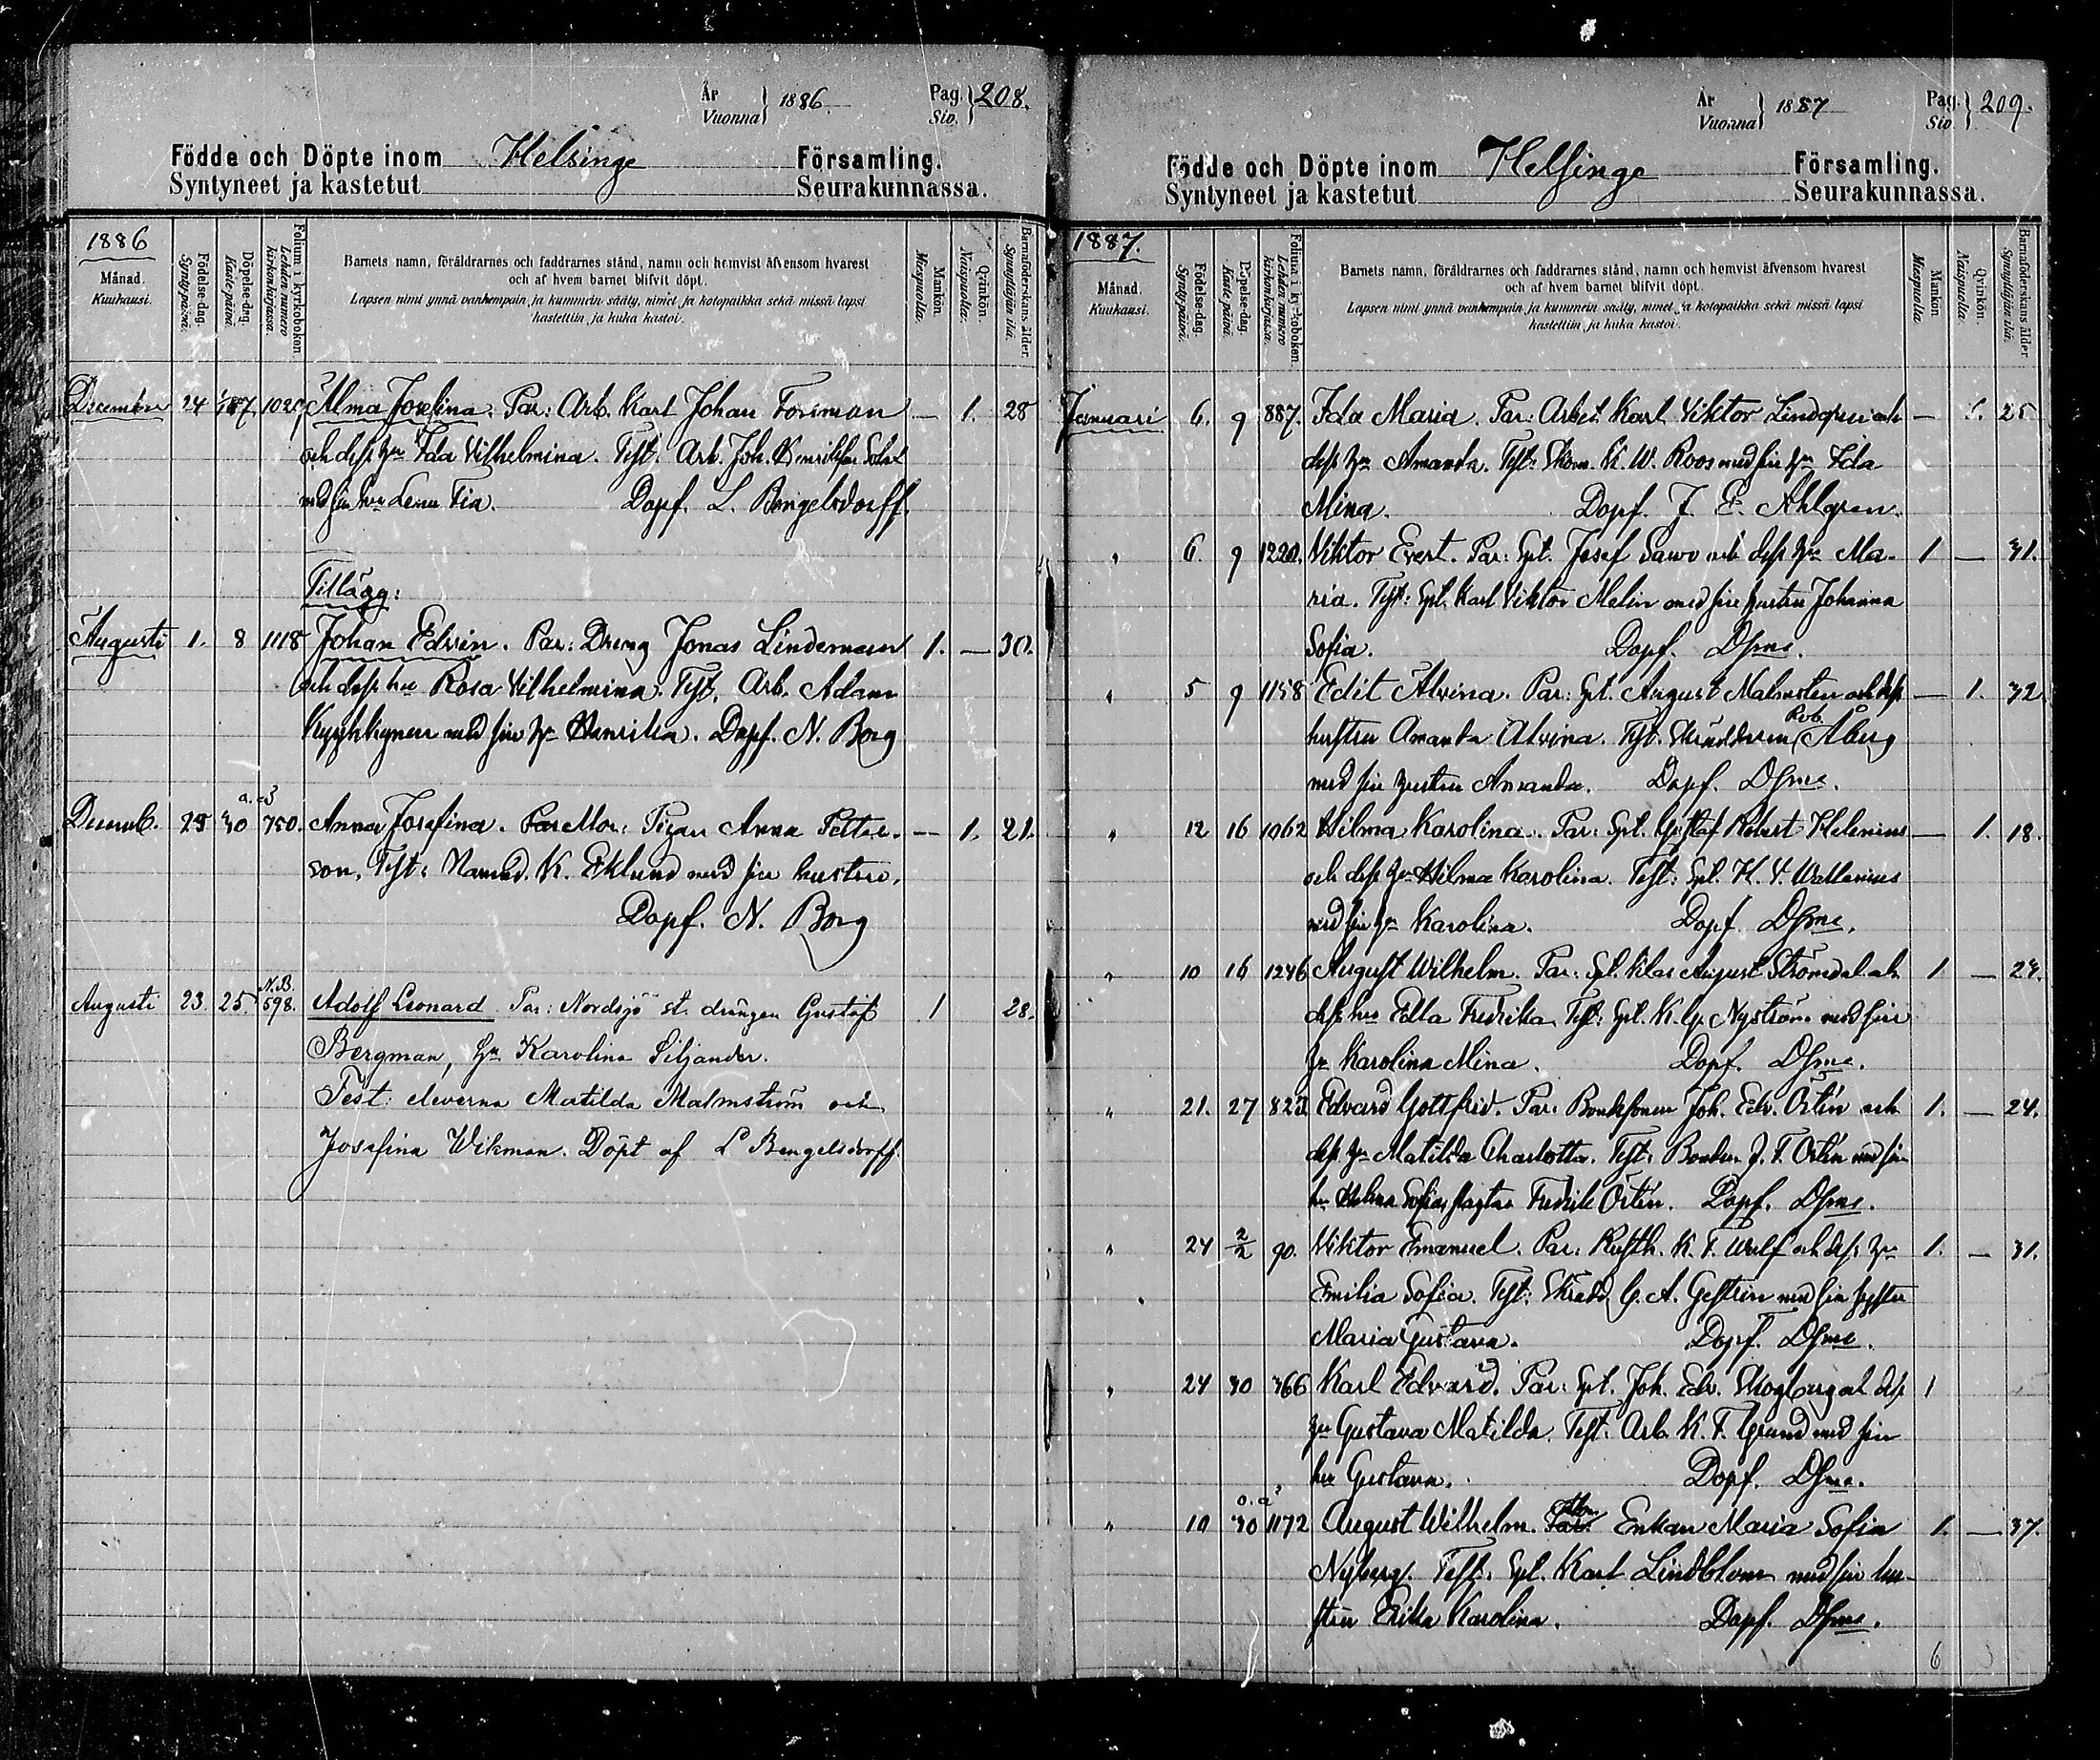 År
Vuonna } 1886
Pag.
Siv. } 208.
Födde och Döpte inom Helsinge Församling.
Syntyneet ja kastetut Seurakunnassa.
1886
Månad.
Kuukausi.
Födelse-dag.
Syntypäivä.
Döpelse-dag.
Kastepäivä.
Folium i kyrkoboken.
Lehden numero kirkonkirjassa.
Barnets namn, föräldrarnes och faddrarnes stånd, namn och hemvist äfvensom hvarest
och af hvem barnet blifvit döpt.
Lapsen nimi ynnä vanhempain ja kummein sääty, nimet ja kotopaikka sekä missä lapsi
kastettiin ja kuka kastoi.
Mankön.
Miespuolia.
Qvinkön.
Naispuolia.
Barnaföderskans ålder.
Synnyttäjän ikä.
December 24 1029 Alma Josefina. Par: Arb. Karl Johan Forsman — 1. 28
och dess hu Ida Vilhelmina. Test. Arb. Joh.
med sin hu Lena Fia. Döpt. L. Bengelsdorff.
Tillägg:
Augusti 1. 8 1118 Johan Edvin. Par: Dreng Jonas Lindeman 1. — 30.
och dess hu Rosa Vilhelmina. Test. Arb. Adam
med sin hu Henrika. Döpt. N. Borg
Decemb. 25 30 750. Anna Josefina. Par Mor: Pigan Anna Petter- — 1. 21.
son. Test: K. Eklund med sin hustru.
Döpt. N. Borg
N.B.
Augusti 23. 25. 598. Adolf Leonard Par: Nordsjö st. drängen Gustaf 1 28.
Bergman, hu Karolina Siljander.
Test: eleverna Matilda Malmström och
Josefina Wikman. Döpt af L Bengelsdorff.
År
Vuonna } 1887
Pag.
Siv. } 209.
Födde och Döpte inom Helsinge Församling.
Syntyneet ja kastetut Seurakunnassa.
1887.
Månad.
Kuukausi.
Födelse-dag.
Syntypäivä.
Döpelse-dag.
Kastepäivä.
Folium i kyrkoboken.
Lehden numero kirkonkirjassa.
Barnets namn, föräldrarnes och faddrarnes stånd, namn och hemvist äfvensom hvarest
och af hvem barnet blifvit döpt.
Lapsen nimi ynnä vanhempain ja kummein sääty, nimet ja kotopaikka sekä missä lapsi
kastettiin ja kuka kastoi.
Mankön.
Miespuolia.
Qvinkön.
Naispuolia.
Barnaföderskans ålder.
Synnyttäjän ikä.
Januari 6. 9 887. Ida Maria. Par: Arbet. Karl Viktor Lindgren och — 1. 25
dess hu Amanda. Test: Skom. K. W. Roos med sin hu Ida
Mina. Döpt. J. E. Ahlgren.
" 6. 9 1220. Viktor Evert. Par: Spt. Josef Sawo och dess hu Ma- 1 — 31.
ria. Test: Spt. Karl Viktor Melin med sin hustru Johanna
Sofia. Döpt. Dsme.
" 5 9 1158 Edit Alvina. Par: Spt. August Malmsten och dess — 1. 32
hustru Amanda Alvina. Test. Skräddaren Rob. Åberg
med sin hustru Amanda. Döpt. Dsme.
" 12 16 1062 Hilma Karolina. Par: Spt. Gustaf Robert Helenius — 1. 18.
och dess hu Hilma Karolina. Test: Spt. K. V. Wallenius
med sin hu Karolina. Döpt Dsme.
" 10 16 1246 August Wilhelm. Par: Spt. Klas August Strömdal och 1 — 24.
dess hu Edla Fredrika. Test: Spt. K. G. Nyström med sin
hu Karolina Mina. Döpt. Dsme.
" 21. 27 823 Edvard Gottfrid. Par: Bondesonen Joh. Edv. Örtén och 1. — 24.
dess hu Matilda Charlotta. Test: Bonden J. F. Örtén med sin
hu Helena Sofia, Fredrik Örtén. Döpt. Dsme.
" 24 2/2 90. Viktor Emanuel. Par: Rusth. K. F. Wulf och dess hu 1. — 31.
Emilia Sofia. Test: Skrädd. G. A. Gestrin med sin syster
Maria Gustava. Döpt. Dsme.
" 24 30 366 Karl Edvard. Par: Spt. Joh. Edv. Skogberg och dess 1
hu Gustava Matilda. Test: Arb. K. F. Grund med sin
hu Gustava. Döpt. Dsme.
" 10 30 1172 August Wilhelm. Par: Mor Enkan Maria Sofia 1. — 37.
Nyberg. Test: Spt. Karl Lindblom med sin hu-
stru Erika Karolina. Döpt. Dsme.
6